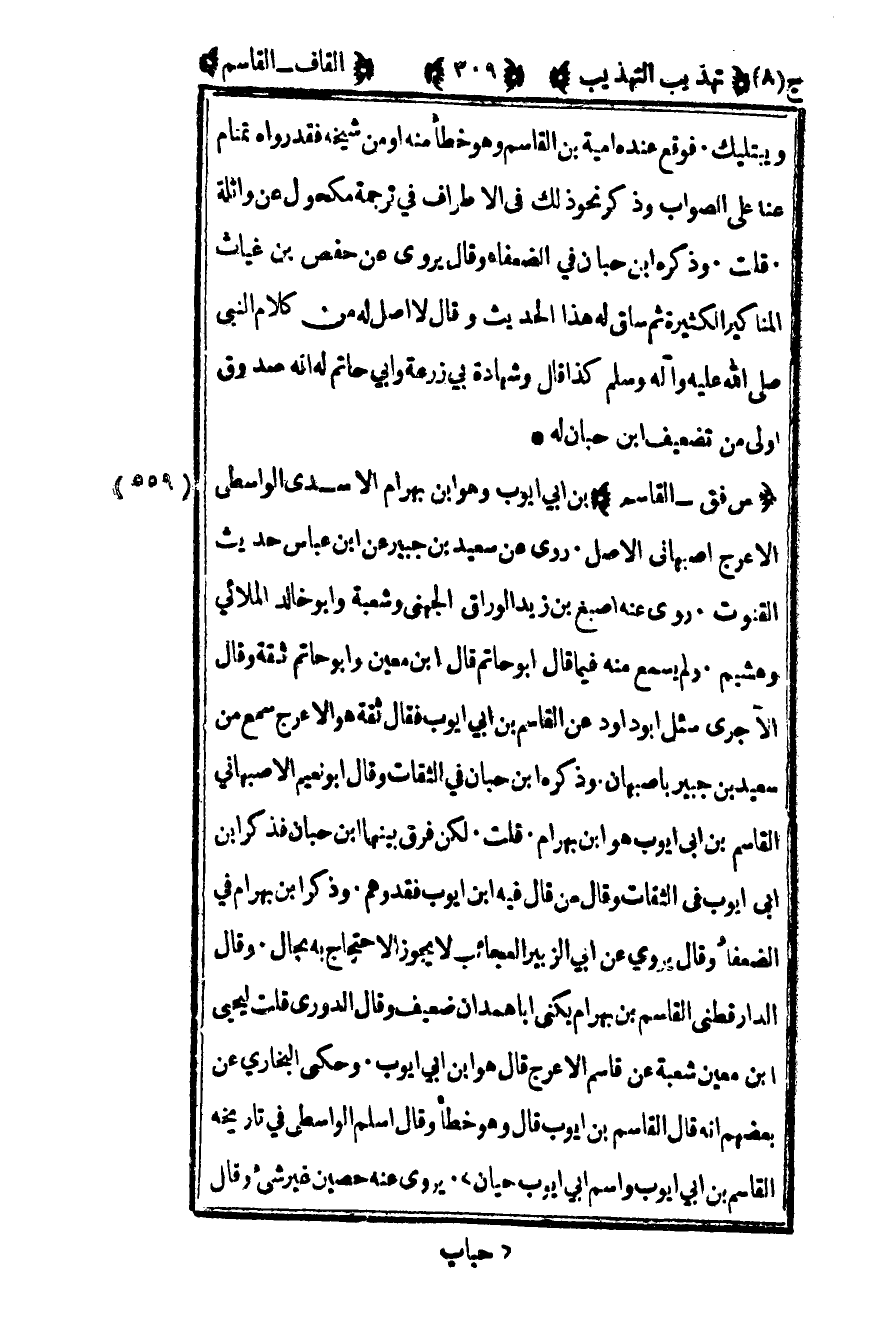 ج (٨) ﴿ تهذيب التهذيب ﴾ ﴿ ٣٠٩ ﴾ ﴿ القاف ـ القاسم ﴾
ويبتليك · فوقع عنده امية بن القاسم وهو خطأ منه او من شيخه فقد رواه تمتام
عنا على الصواب وذكر نحو ذلك فى الاطراف في ترجمة مكحول عن واثلة
· قلت · وذكره ابن حبان في الضعفاء وقال يروى عن حفص بن غياث
المناكير الكثيرة ثم ساق له هذا الحديث وقال لا اصل له من كلام النبى
صلى الله عليه وآله وسلم كذا قال وشهادة بي زرعة وابي حاتم له انه صدوق
اولى من تضعيف ابن حبان له •
﴿ س فق ـ القاسم ﴾ بن ابي ايوب وهو ابن بهرام الاسدى الواسطى (٥٥٩)
الاعرج اصبهانى الاصل · روى عن سعيد بن جبير عن ابن عباس حديث
القنوت · روى عنه اصبغ بن زيد الوراق الجهنى وشعبة وابو خالد الملائي
وهشيم · ولم يسمع منه فيما قال ابو حاتم قال ابن معين وابو حاتم ثقة وقال
الآجرى سئل ابو داود عن القاسم بن ابي ايوب فقال ثقة هو الاعرج سمع من
سعيد بن جبير باصبهان · وذكره ابن حبان في الثقات وقال ابو نعيم الاصبهاني
القاسم بن ابى ايوب هو ابن بهرام · قلت · لكن فرق بينهما ابن حبان فذكر ابن
ابى ايوب فى الثقات وقال من قال فيه ابن ايوب فقد وهم · وذكر ابن بهرام في
الضعفاء وقال يروي عن ابي الزبير العجائب لا يجوز الاحتجاج به بحال · وقال
الدار قطنى القاسم بن بهرام يكنى ابا همدان ضعيف وقال الدورى قلت ليحيى
ابن معين شعبة عن قاسم الاعرج قال هو ابن ابي ايوب · وحكى البخاري عن
بعضهم انه قال القاسم بن ايوب قال وهو خطأ وقال اسلم الواسطى في تاريخه
القاسم بن ابي ايوب واسم ابي ايوب حيان ٢ · يروى عنه حصين غير شئ وقال
٢ حباب